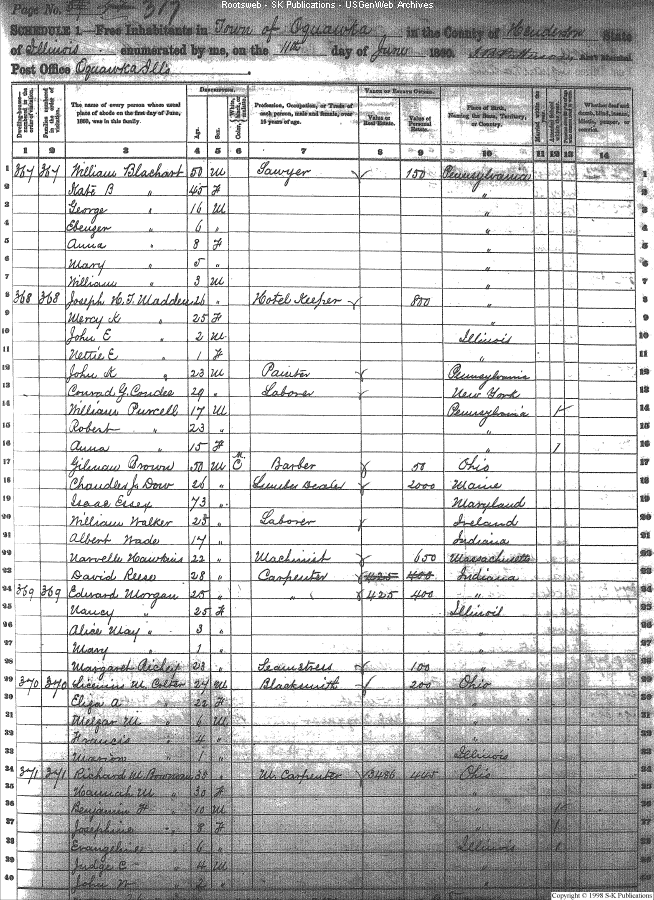 Rootsweb - SK Publications - USGenWeb Archives
Page No. 317
SCHEDULE 1.—Free Inhabitants in Town of Oquawka in the County of Henderson State
of Illinois enumerated by me, on the 11th day of June 1860. Ass't Marshal.
Post Office Oquawka Ills
Dwelling-houses— numbered in the order of visitation. Families numbered in the order of visitation. The name of every person whose usual place of abode on the first day of June, 1860, was in this family. DESCRIPTION. Age. Sex. Color, Profession, Occupation, or Trade of each person, male and female, over 15 years of age. VALUE OF ESTATE OWNED. Value of Real Estate. Value of Personal Estate. Place of Birth, Naming the State, Territory, or Country. Married within the year. Whether deaf and dumb, blind, insane, idiotic, pauper, or convict.
1 2 3 4 5 6 7 8 9 10 11 12 13 14
1 367 367 William Blachart 50 M Sawyer 150 Pennsylvania 1
2 Kate B " 45 F "
3 George " 16 M "
4 " 6 " "
5 Anna " 8 F "
6 Mary " 5 " "
7 William " 3 M "
8 368 368 Joseph H. T. Madden 26 " Hotel Keeper 800 " 8
9 Mercy K " 25 F " 9
10 John E " 2 M Illinois 10
11 Nettie E " 1 F " 11
12 John K " 23 M Painter Pennsylvania 12
13 Conrad G. Condee 29 " Laborer New York 13
14 William Purcell 17 M Pennsylvania 1 14
15 Robert " 23 " " 15
16 Anna " 15 F " 1 16
17 Gilman Brown 50 M Barber 50 Ohio 17
18 Dow 26 " Lumber Dealer 2000 Maine 18
19 Isaac Essex 73 " Maryland 19
20 William Walker 25 " Laborer Ireland 20
21 Albert Wade 17 " Indiana 21
22 Hawkins 22 " Machinist 650 Massachusetts 22
23 David Reese 28 " Carpenter 425 400 Indiana 23
24 369 369 Edward Morgan 25 " " 425 400 " 24
25 Nancy " 25 F Illinois 25
26 Alice May " 3 " " 26
27 Mary " 1 " " 27
28 Margaret 23 " Seamstress 100 " 28
29 370 370 M. Colter 27 M Blacksmith 200 Ohio 29
30 Eliza A " 22 F " 30
31 M " 6 M "
32 Francis " 4 " "
33 Marion " 1 " Illinois
34 371 371 Richard M. Bowman 35 " M. Carpenter 3486 445 Ohio
35 Hannah M " 30 F "
36 Benjamin F " 10 M " 1
37 Josephine " 8 F " 1
38 Evangeline " 6 " Illinois 1
39 Judge C " 4 M "
40 John W " 2 " "
Copyright © 1998 S-K Publications